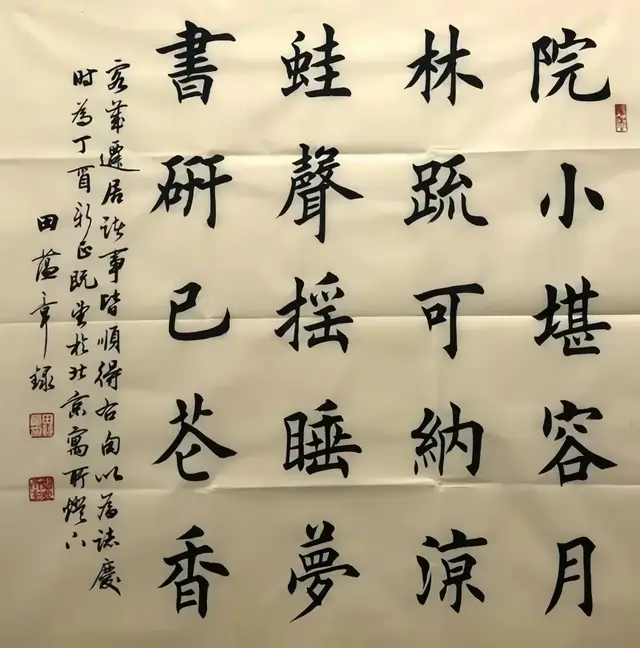 院小堪容月
林䟽可納涼
蛙聲摇睡夢
書硏已芲香
客歲遷居諸事皆順得右句以爲誌慶
时為丁酉新正既望於北京寓所燈下
田蕴章録